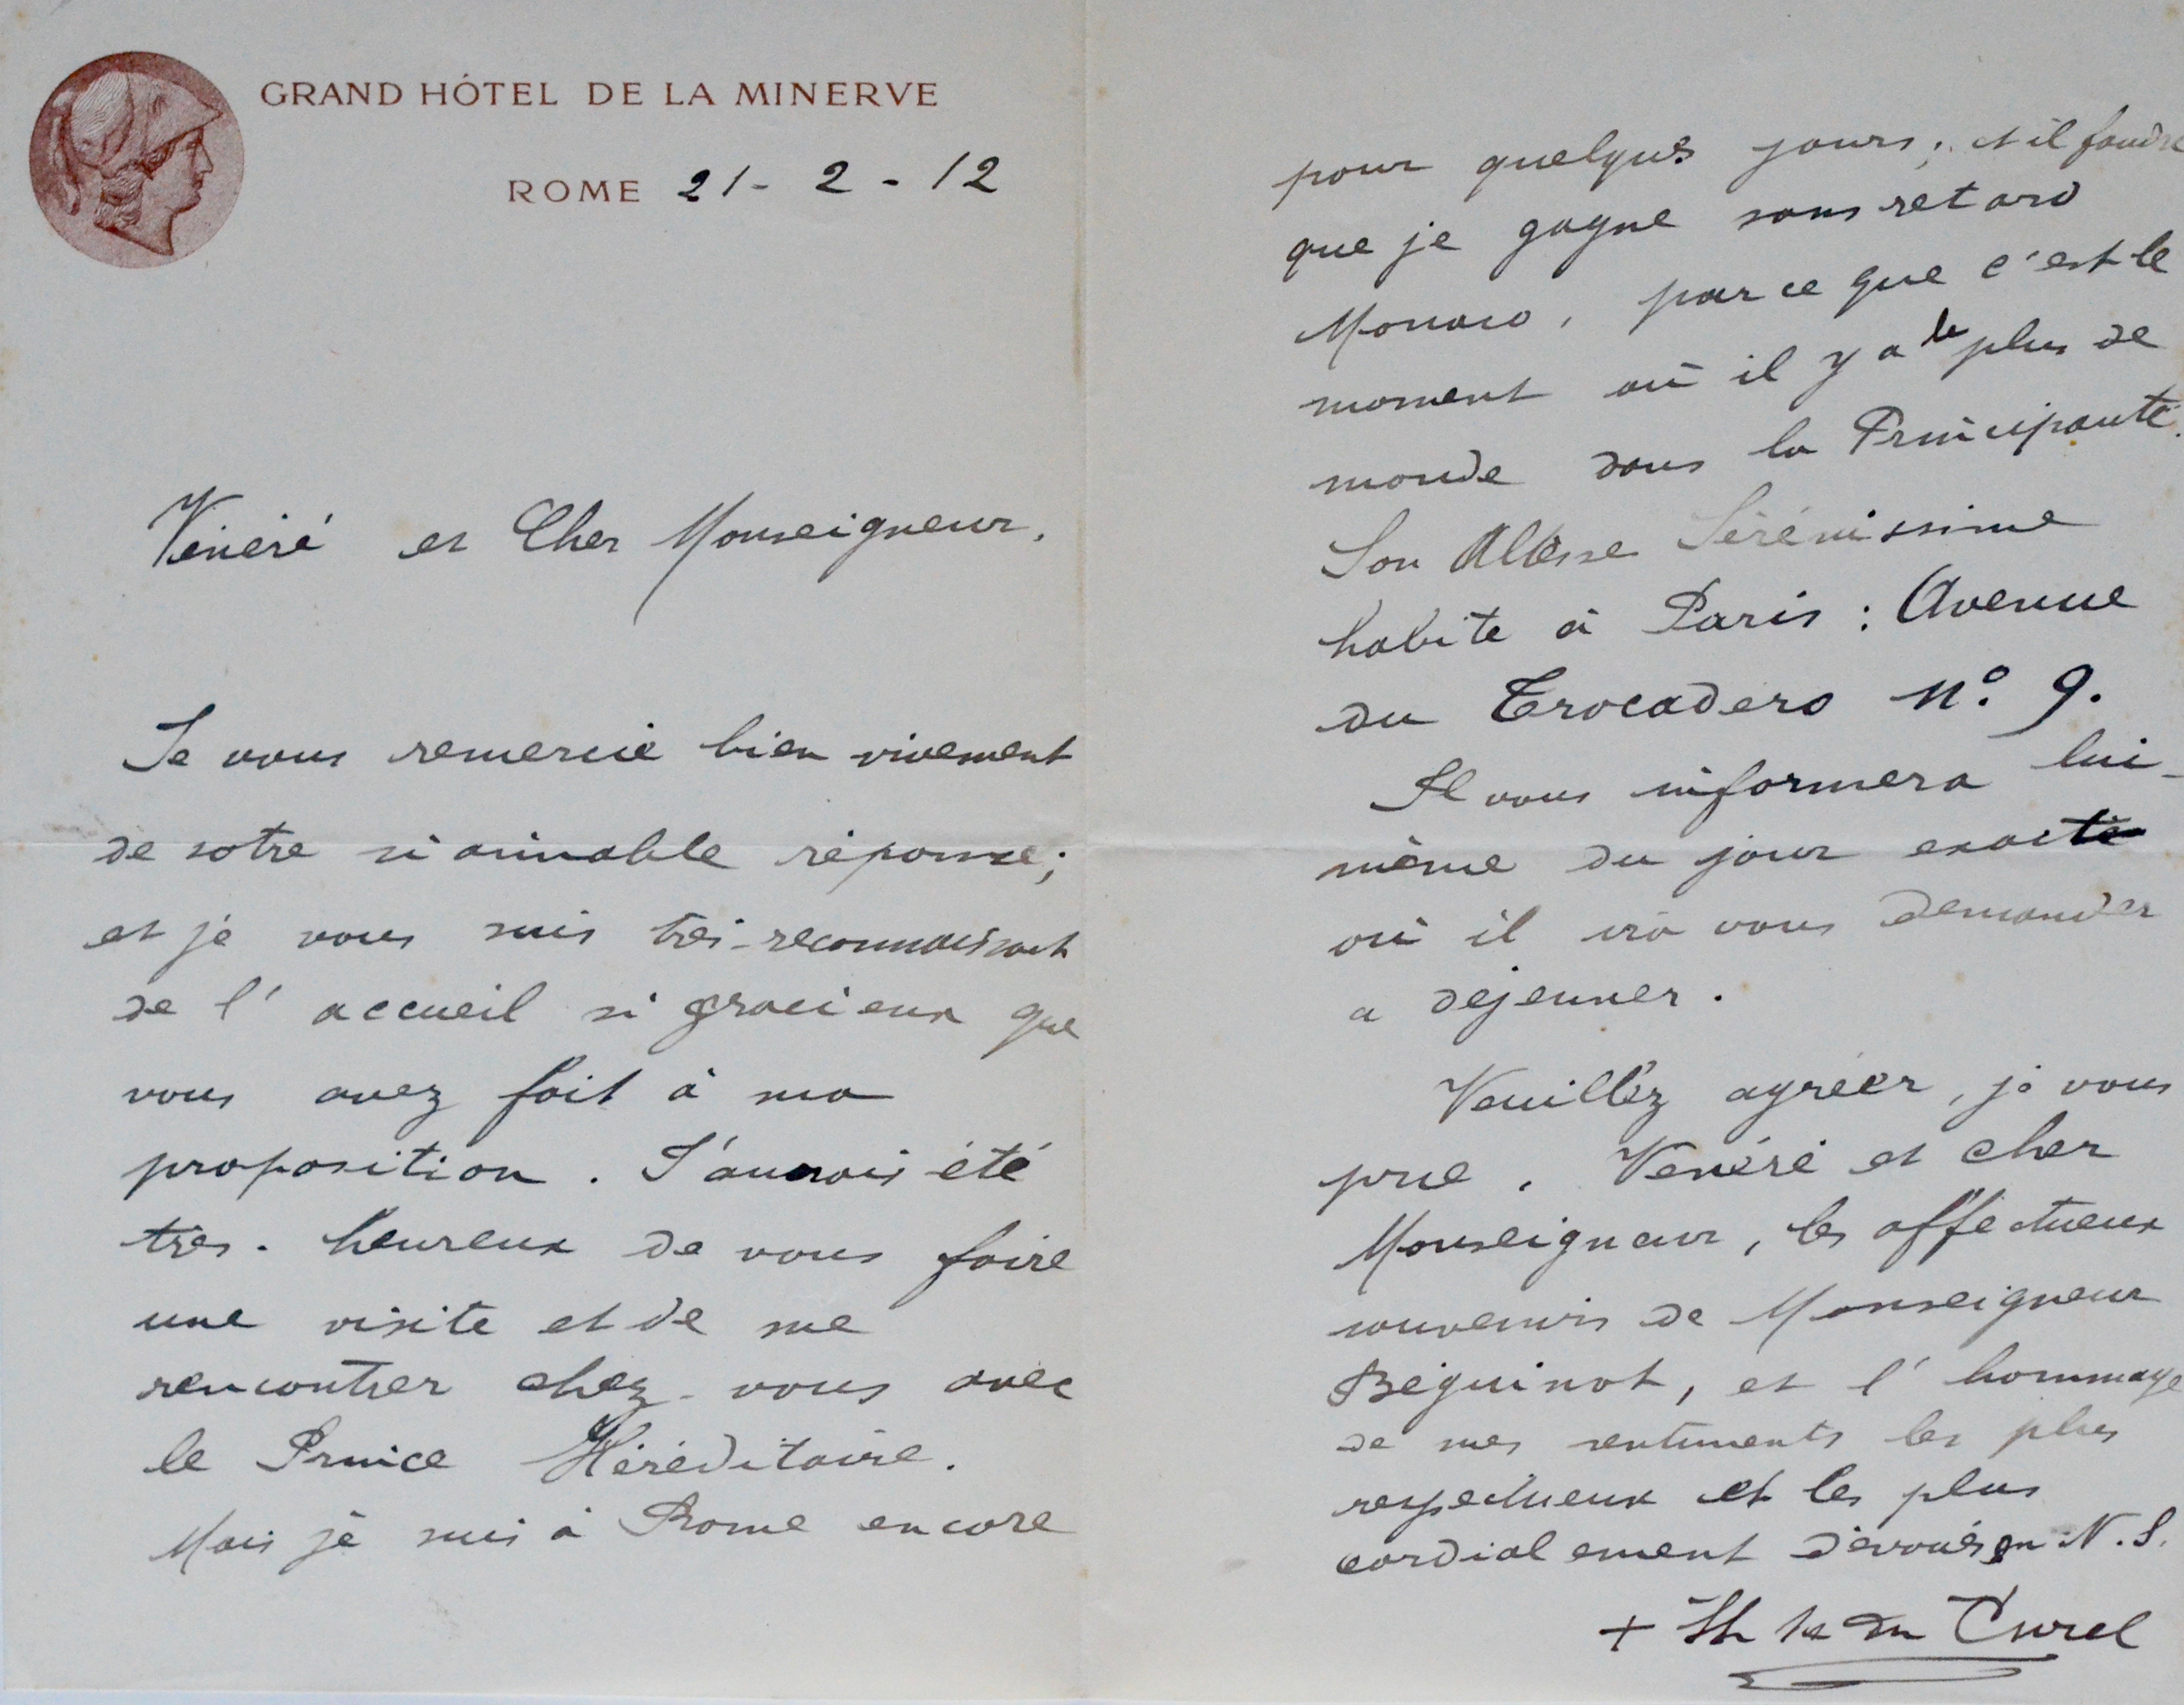 GRAND HÔTEL DE LA MINERVE
ROME 21 - 2 - 12
Vénéré et Cher Monseigneur,
Je vous remercie bien vivement
de votre si aimable réponse;
et je vous suis très-reconnaissant
de l'accueil si gracieux que
vous avez fait à ma
proposition. J'aurais été
très-heureux de vous faire
une visite et de me
rencontrer chez-vous avec
le Prince Héréditaire.
Mais je suis à Rome encore
pour quelques jours; et il faudra
que je gagne sans retard
Monaco, parce que c'est le
moment où il y a le plus de
monde dans la Principauté.
Son Altesse Sérénissime
habite à Paris : Avenue
du Trocadero N° 9.
Il vous informera lui-
même du jour exacte
où il ira vous demander
a dejeuner.
Veuillez agréer, je vous
prie, Vénéré et cher
Monseigneur, les affectueux
souvenirs de Monseigneur
Béguinot, et l'hommage
de mes sentiments les plus
respectueux et les plus
cordialement dévoués en N. S.
+ du Curel